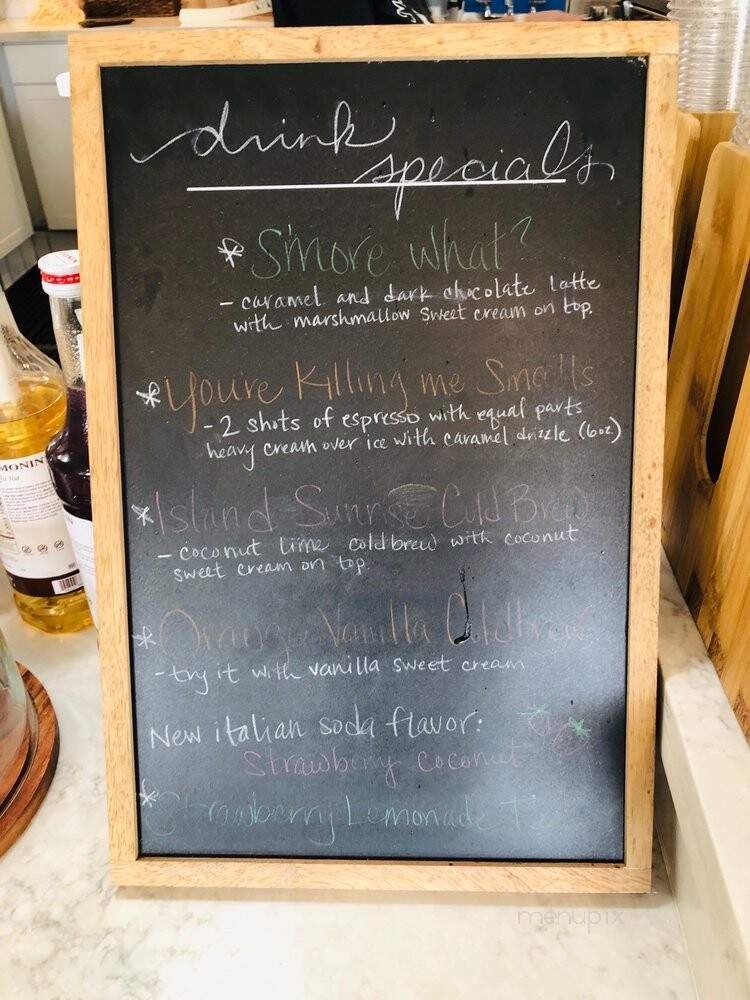 drink
specials
* S'more What?
- caramel and dark chocolate latte
with marshmallow sweet cream on top.
* You're Killing me Smalls
- 2 shots of espresso with equal parts
heavy cream over ice with caramel drizzle (6oz)
* Island Sunrise Cold Brew
- coconut lime coldbrew with coconut
sweet cream on top.
* Orange Vanilla Coldbrew
- try it with vanilla sweet cream
New italian soda flavor:
Strawberry coconut
* Strawberry Lemonade
MONIN
menupix